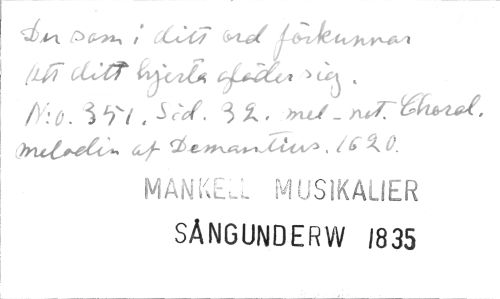 Du som i ditt ord förkunnar
Att ditt hjerta gläder sig.
N:o. 351. Sid. 32. mel-not. Choral.
melodin af Demantius. 1620.
MANKELL MUSIKALIER
SÅNGUNDERW 1835